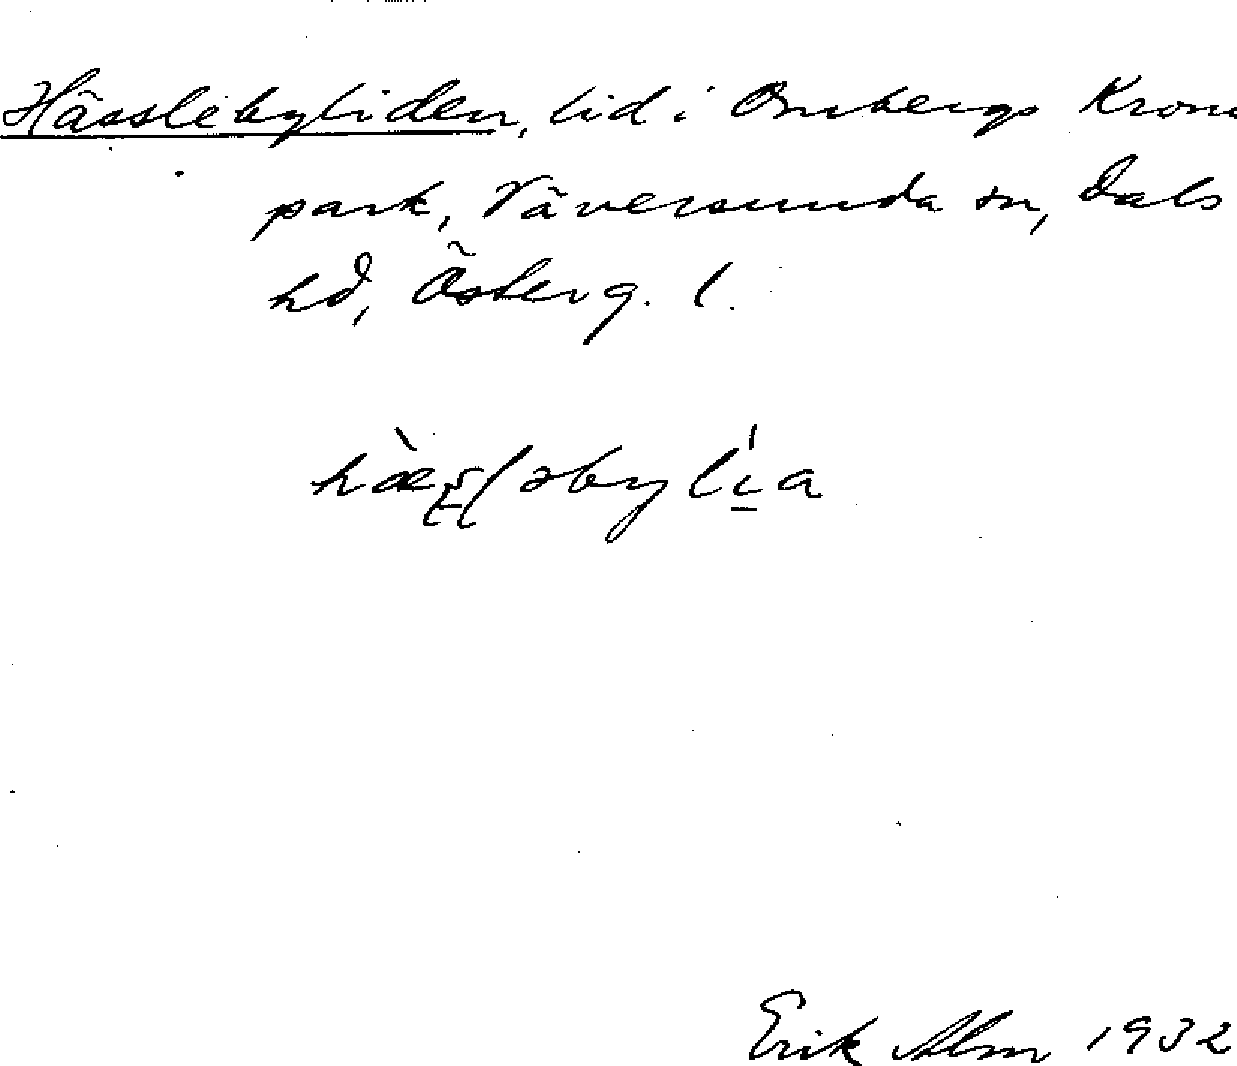 Hässlebyliden, lid i Ombergs Krono
park, Väversunda sn, Dals
hd, Österg. l.
Erik Alm 1932